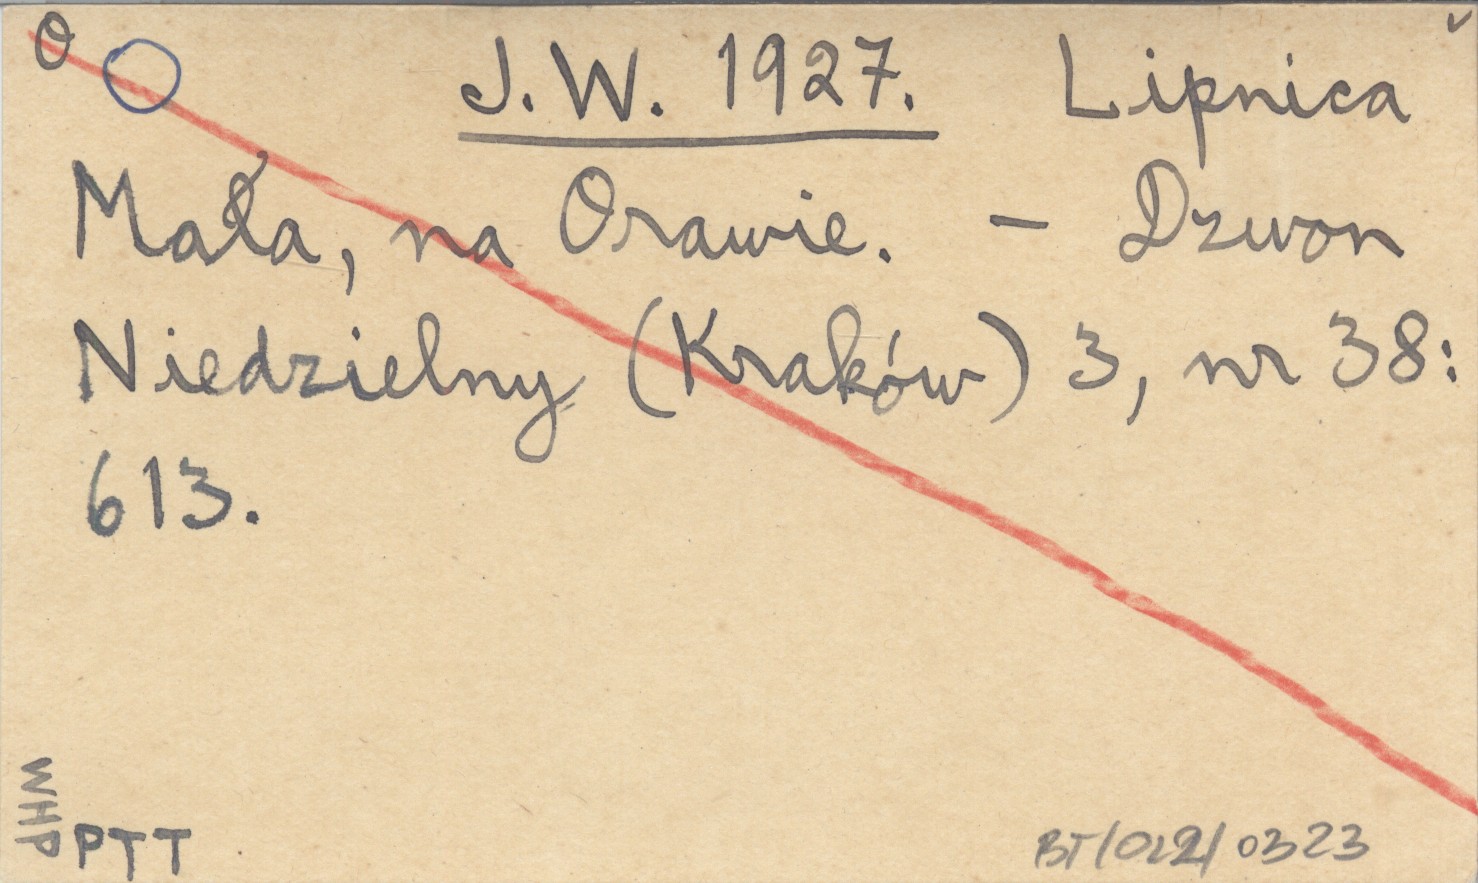 O
J. W. 1927. Lipnica
Mała, na Orawie. – Dzwon
Niedzielny (Kraków) 3, nr 38:
613.
WHP
PTT
BT/OL2/0323